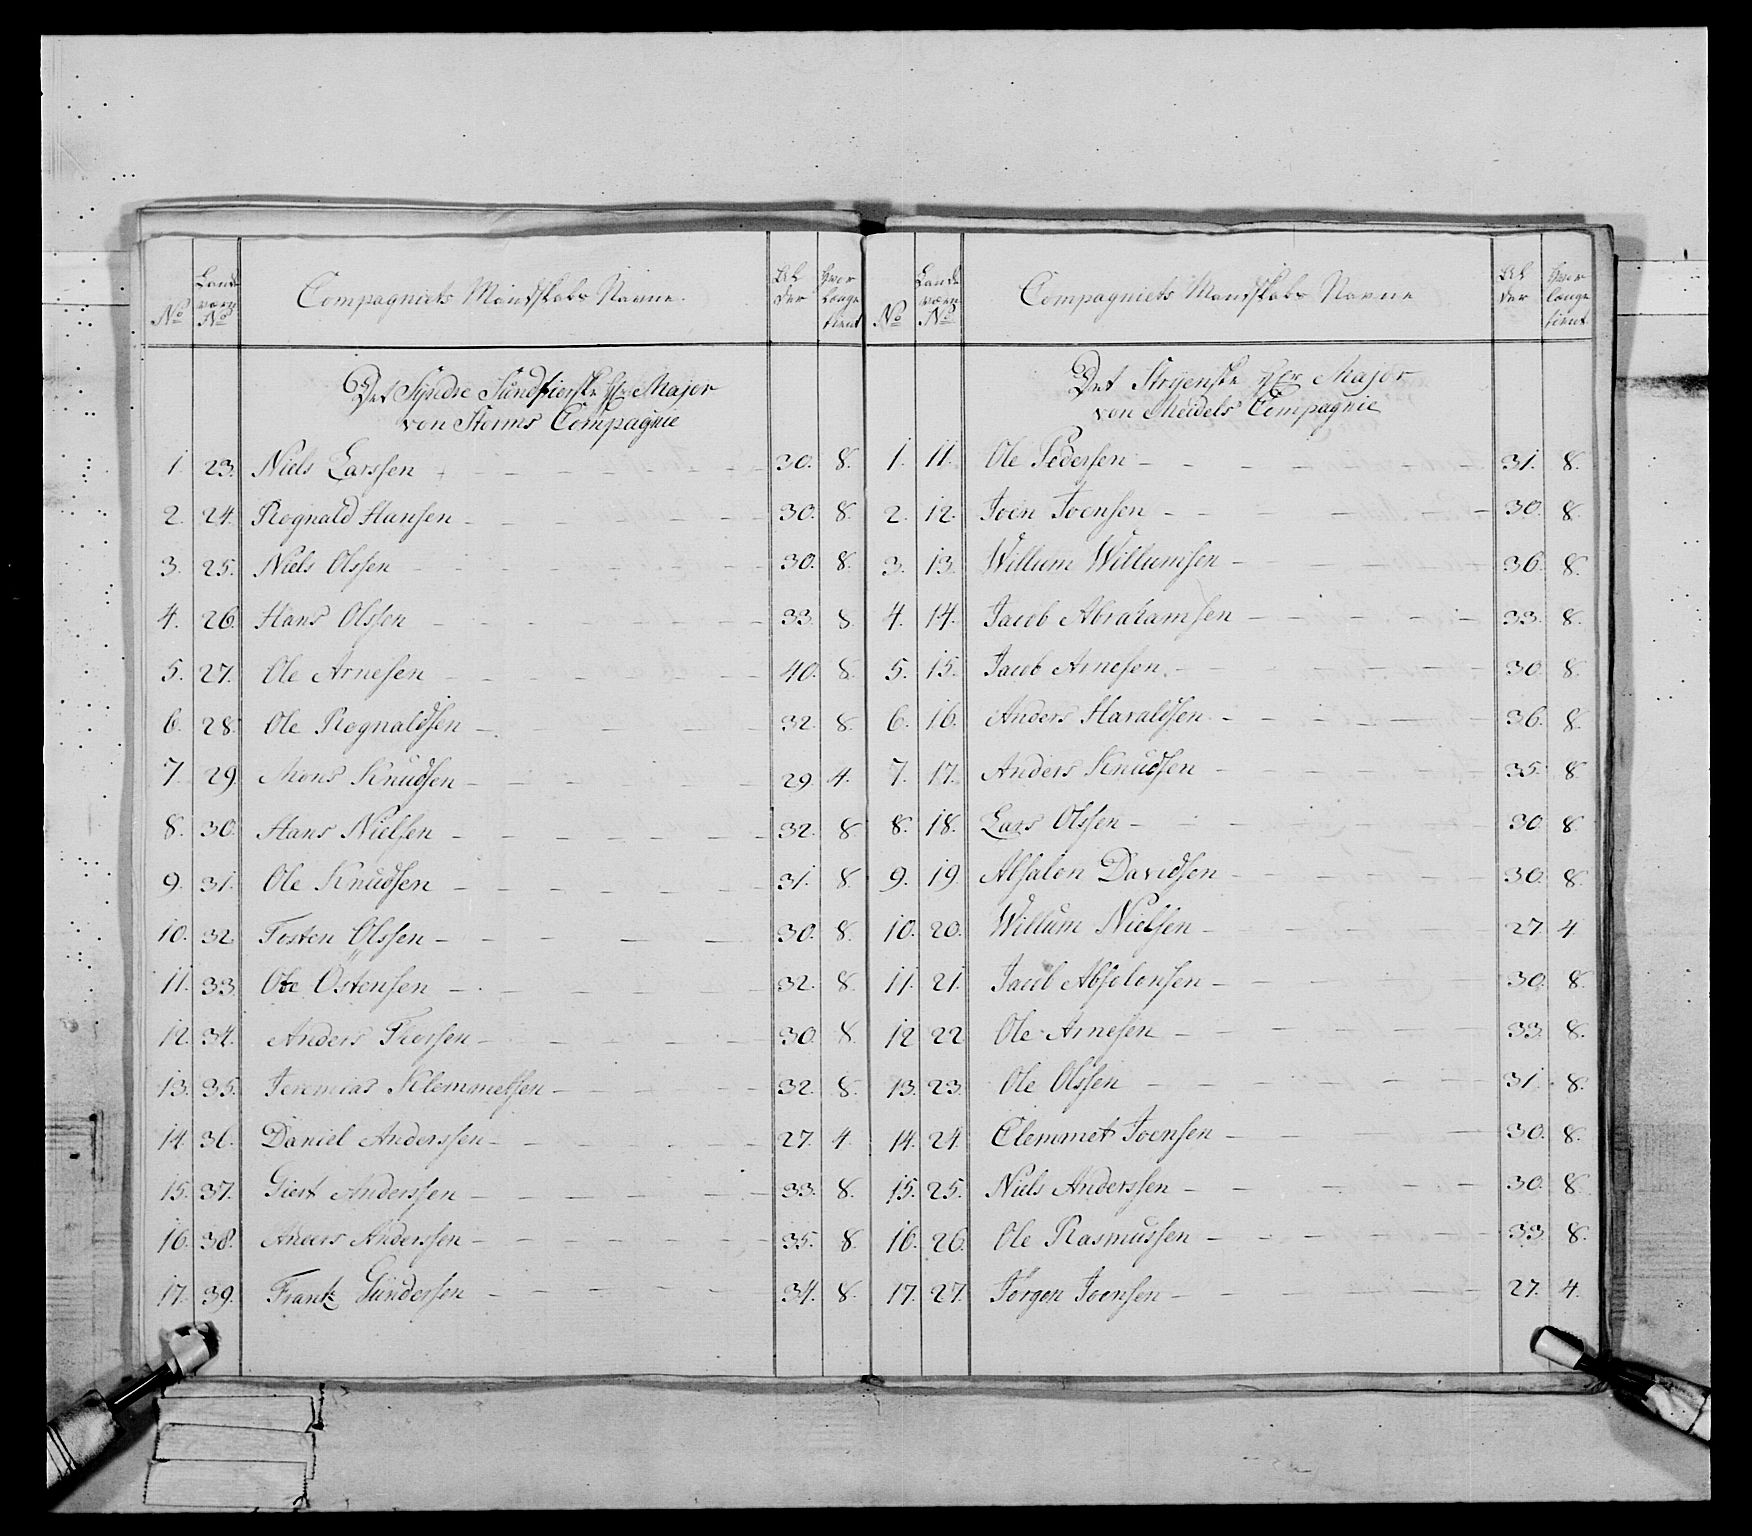 No
Land
værn
No
Compagniets Mandskabs Navne.
Al
der
Hvor
længe
tient
Det Syndre Sundfierske Hr. Major
von Storms Compagnie
1. 23. Niels Larssen 30. 8.
2. 24. Rognald Hansen 30. 8.
3. 25. Niels Olssen 30. 8.
4. 26. Hans Olssen 33. 8.
5. 27. Ole Arnesen 40. 8.
6. 28. Ole Rognaldsen 32. 8.
7. 29. Mons Knudsen 29. 4.
8. 30. Hans Nielsen 32. 8.
9. 31. Ole Knudsen 31. 8.
10. 32. Tosten Olssen 30. 8.
11. 33. Ole Ostensen 32. 8.
12. 34. Anders Thorsen 30. 8.
13. 35. Jeremias Klemmetsen 32. 8.
14. 36. Daniel Anderssen 27. 4.
15. 37. Giert Anderssen 33. 8.
16. 38. Anders Anderssen 35. 8.
17. 39. Frantz Gundersen 34. 8.
No
Land
værn
No
Compagniets Mandskabs Navne
Al
der
Hvor
længe
tient.
Det Stryenske Hr Major
von Meidels Compagnie
1. 11. Ole Pedersen 31. 8.
2. 12. Joen Joensen 30. 8.
3. 13. Willum Willumsen 36. 8.
4. 14. Jacob Abrahamsen 33. 8.
5. 15. Jacob Arnesen 30. 8.
6. 16. Anders Haraldsen 36. 8.
7. 17. Anders Knudsen 35. 8.
8. 18. Lars Olssen 30. 8.
9. 19. Absalon Davidsen 30. 8.
10. 20. Willum Nielsen 27. 4.
11. 21. Jacob Absolonsen 30. 8.
12 22 Ole Arnesen 33. 8.
13. 23. Ole Olssen 31. 8.
14. 24. Clemmet Joensen 30. 8.
15. 25. Niels Anderssen 30. 8.
16. 26. Ole Rasmussen 33. 8.
17. 27. Jørgen Joensen 27. 4.